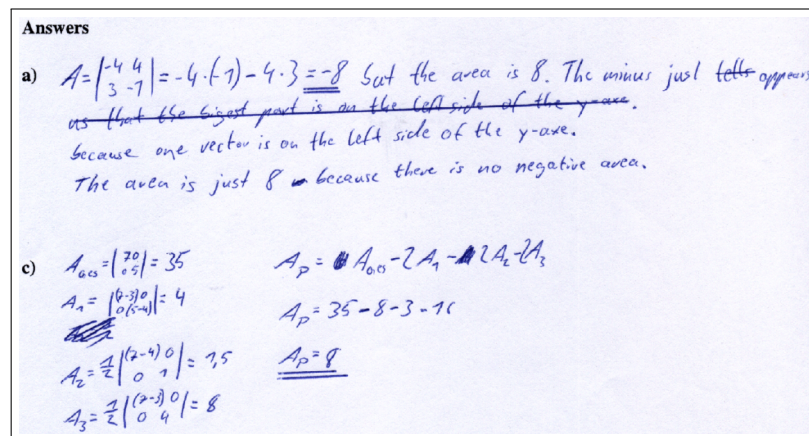 Answers
a) A = |-4 4 / 3 -1| = -4·(-1) - 4·3 = -8 but the area is 8. The minus just tells appears
us that the bigest part is on the left side of the y-axe.
because one vector is on the left side of the y-axe.
The area is just 8 because there is no negative area.
c) A_Ges = |7 0 / 0 5| = 35 A_P = A_Ges - 2A_1 - 2A_2 - 2A_3
A_1 = |(7-3) 0 / 0 (5-4)| = 4 A_P = 35 - 8 - 3 - 16
A_2 = 1/2 |(7-4) 0 / 0 1| = 1,5 A_P = 8
A_3 = 1/2 |(7-3) 0 / 0 4| = 8